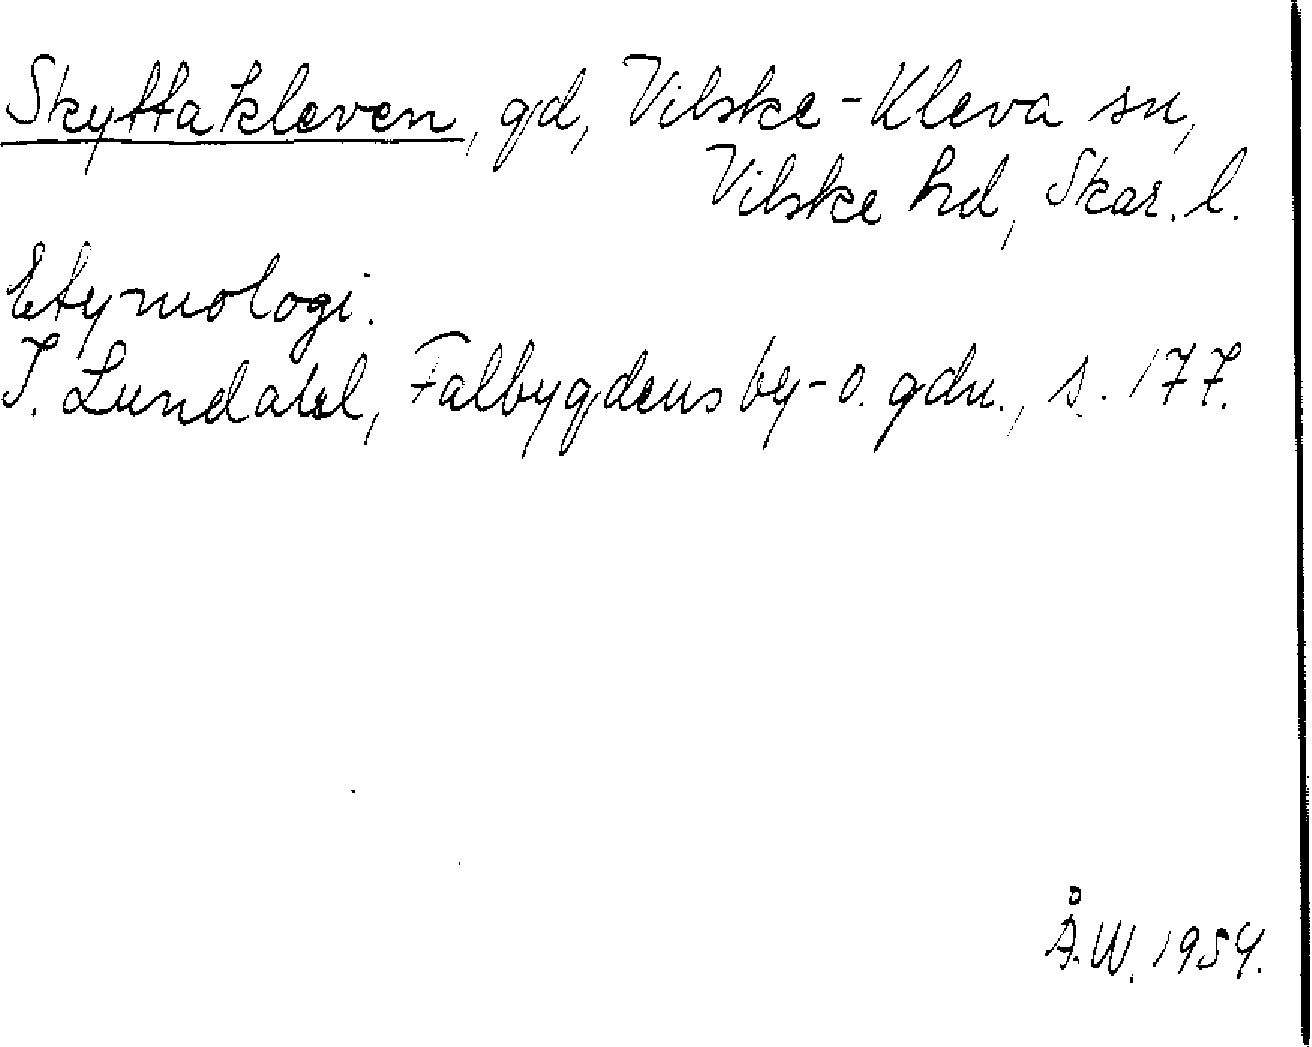 Skyttakleven, gd, Vilske-Kleva sn,
Vilske hd, Skar. l.
Etymologi.
I. Lundahl, Falbygdens by- o. gdn., s. 177.
Å.W. 1954.